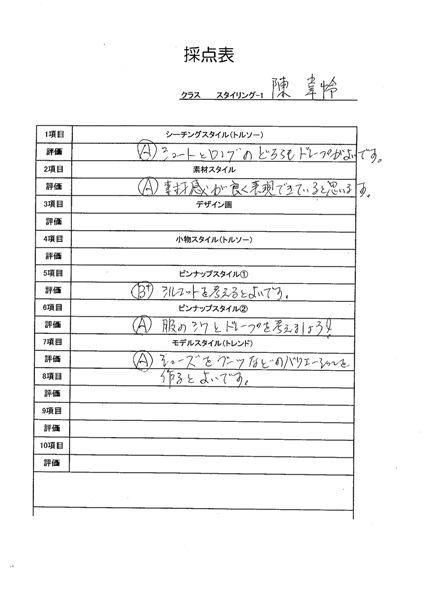 採点表
クラス スタイリング-1 陳 韋怜
1項目 シーチングスタイル(トルソー)
評価 Ⓐ ショートとロングのどちらもドレープがよいです。
2項目 素材スタイル
評価 Ⓐ 素材感が良く表現できていると思います。
3項目 デザイン画
評価
4項目 小物スタイル(トルソー)
評価
5項目 ピンナップスタイル①
評価 B+ シルエットを考えるとよいです。
6項目 ピンナップスタイル②
評価 Ⓐ 服のシワとドレープを考えましょう!
7項目 モデルスタイル(トレンド)
評価 Ⓐ シューズをブーツなどのバリエーションを
8項目 作るとよいです。
評価
9項目
評価
10項目
評価